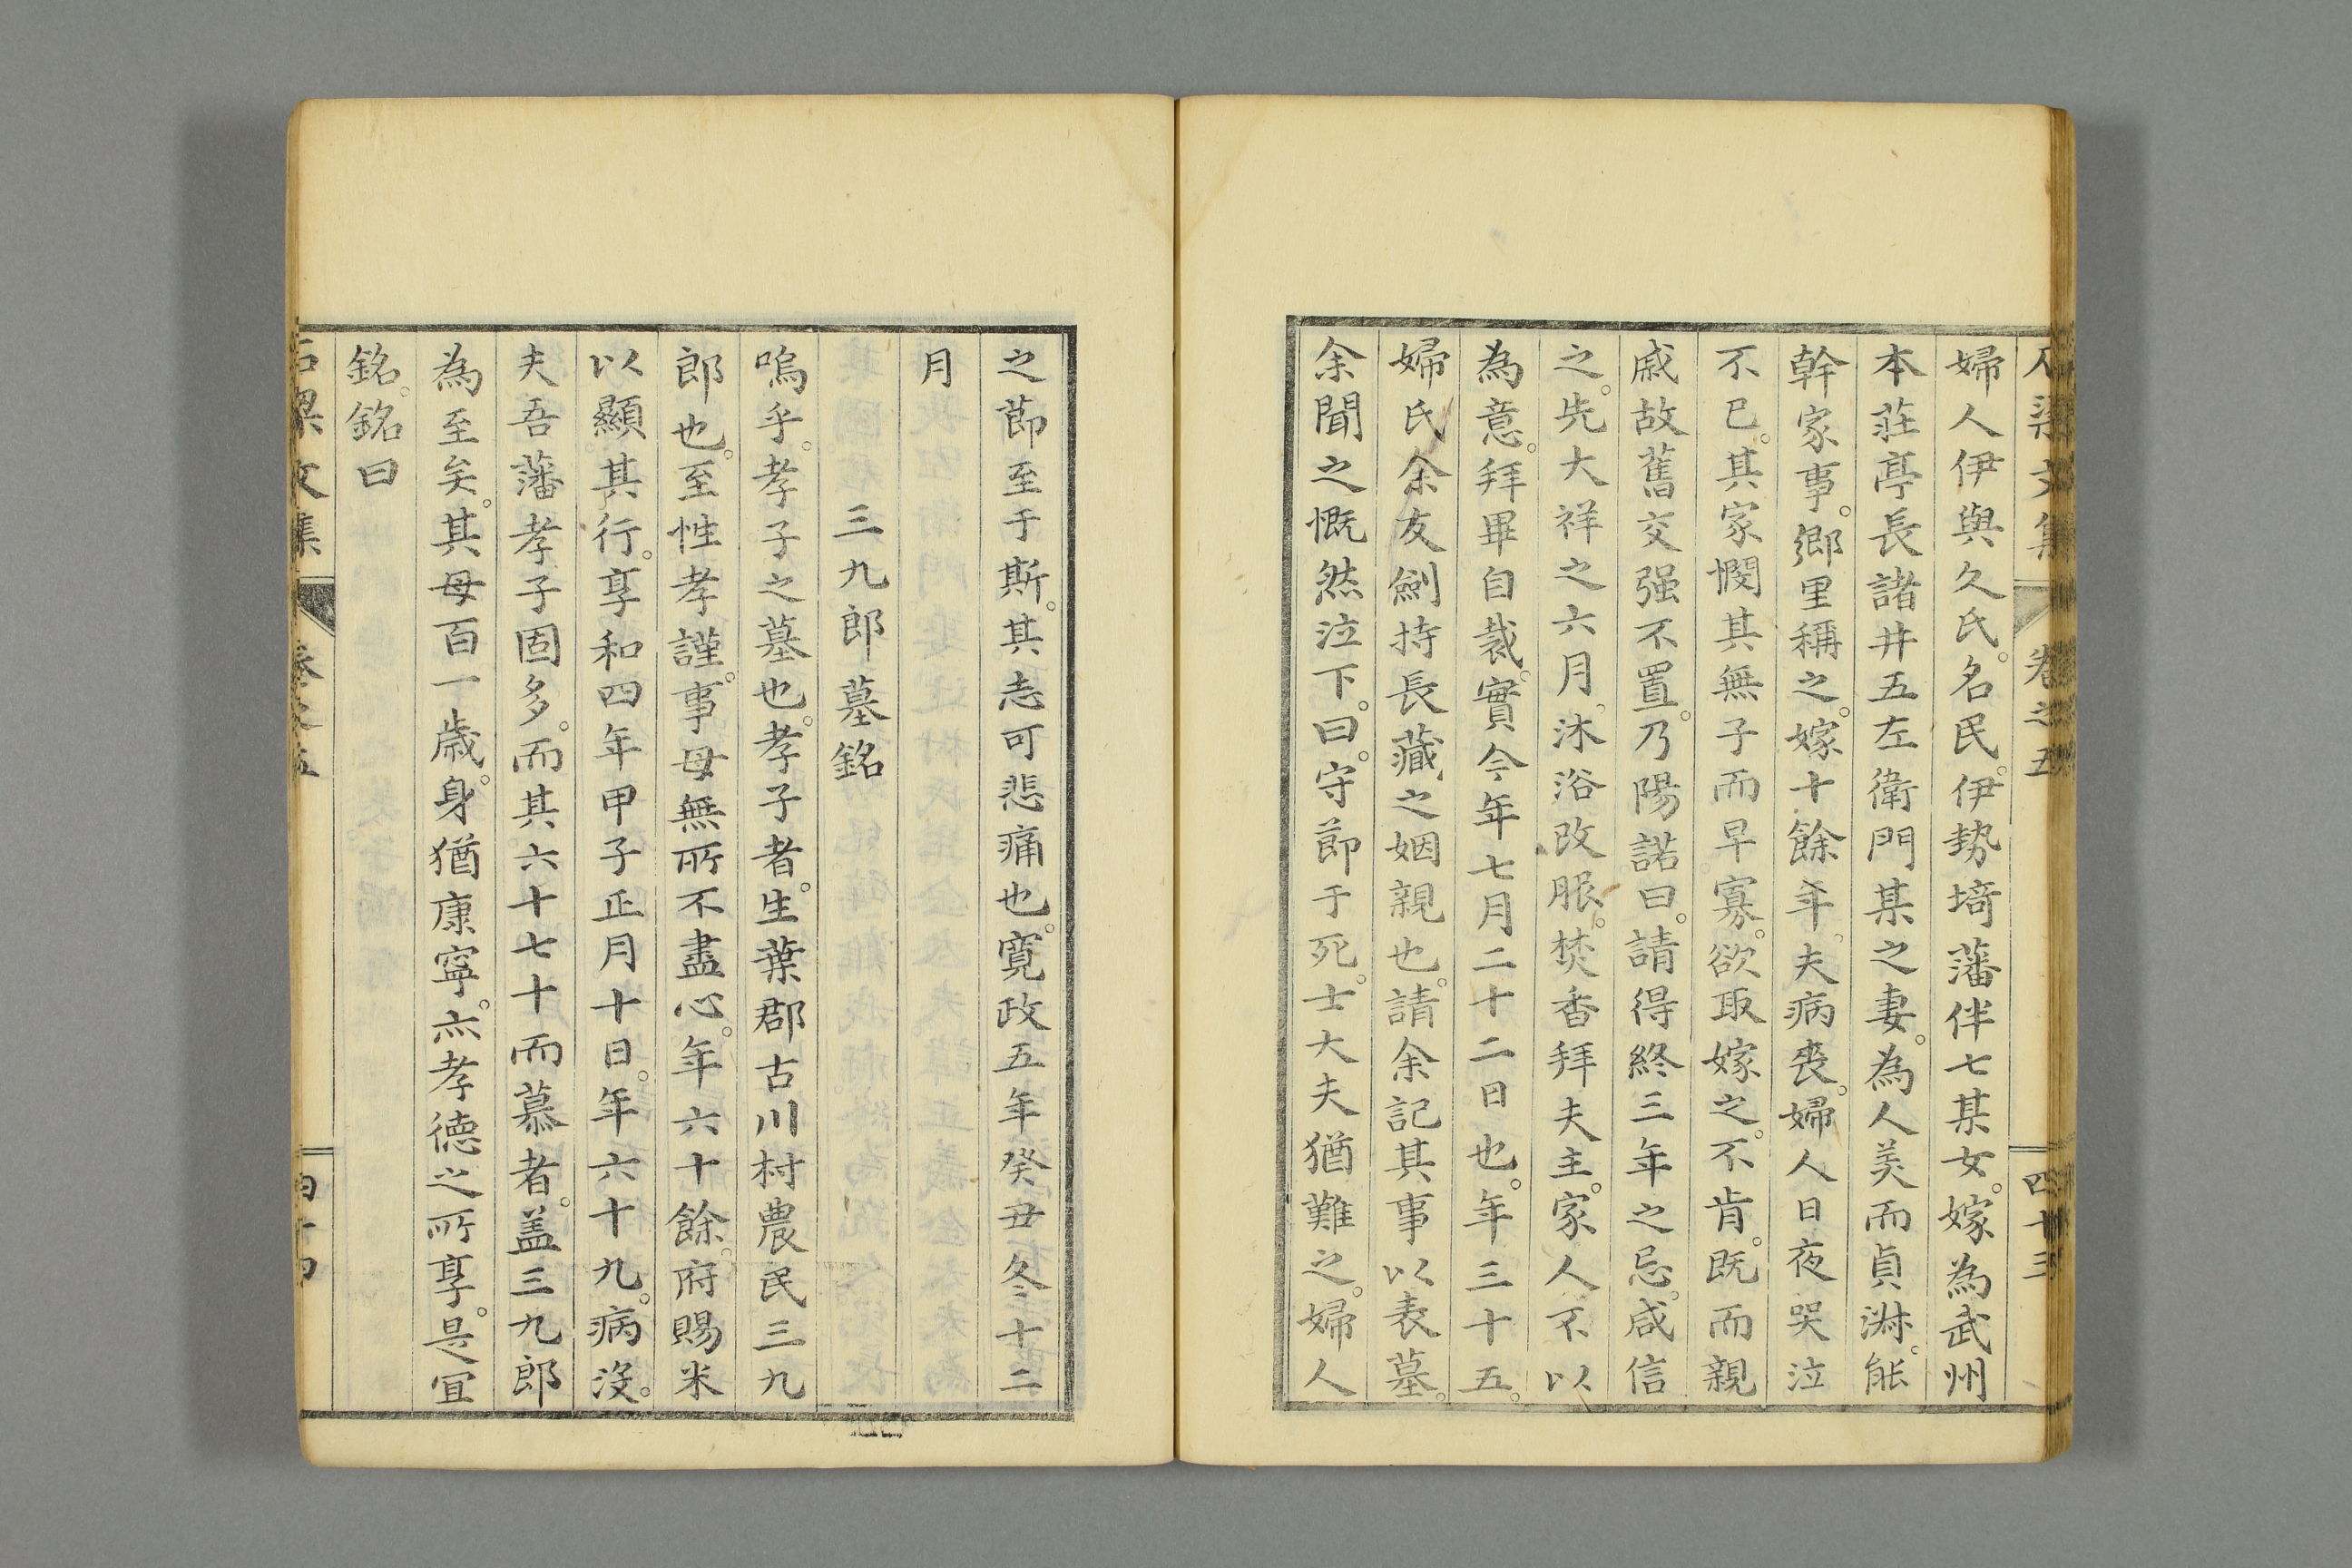 石梁文集 卷之五 四十三
婦人伊與久氏。名民。伊勢埼藩伴七某女。嫁為武州
本莊亭長諸井五左衛門某之妻。為人美而貞淋。能
幹家事。鄉里稱之。嫁十餘年。夫病喪。婦人日夜哭泣
不已。其家憫其無子而早寡。欲取嫁之。不肯。既而親
戚故舊交强不置。乃陽諾曰。請得終三年之忌。咸信
之。先大祥之六月。沐浴改服。焚香拜夫主。家人不以
為意。拜畢自裁。實今年七月二十二日也。年三十五。
婦氏余友劍持長藏之姻親也。請余記其事以表墓。
余聞之慨然泣下。曰。守節于死。士大夫猶難之。婦人
之節至于斯。其志可悲痛也。寬政五年癸丑冬十二
月
三九郎墓銘
嗚乎。孝子之墓也。孝子者。生葉郡古川村農民三九
郎也。至性孝謹。事母無所不盡心。年六十餘。府賜米
以顯其行。享和四年甲子正月十日。年六十九。病沒。
夫吾藩孝子固多。而其六十七十而慕者。盖三九郎
為至矣。其母百一歲。身猶康寧。亦孝德之所享。是宜
銘。銘曰
石梁文集 卷之五 四十四